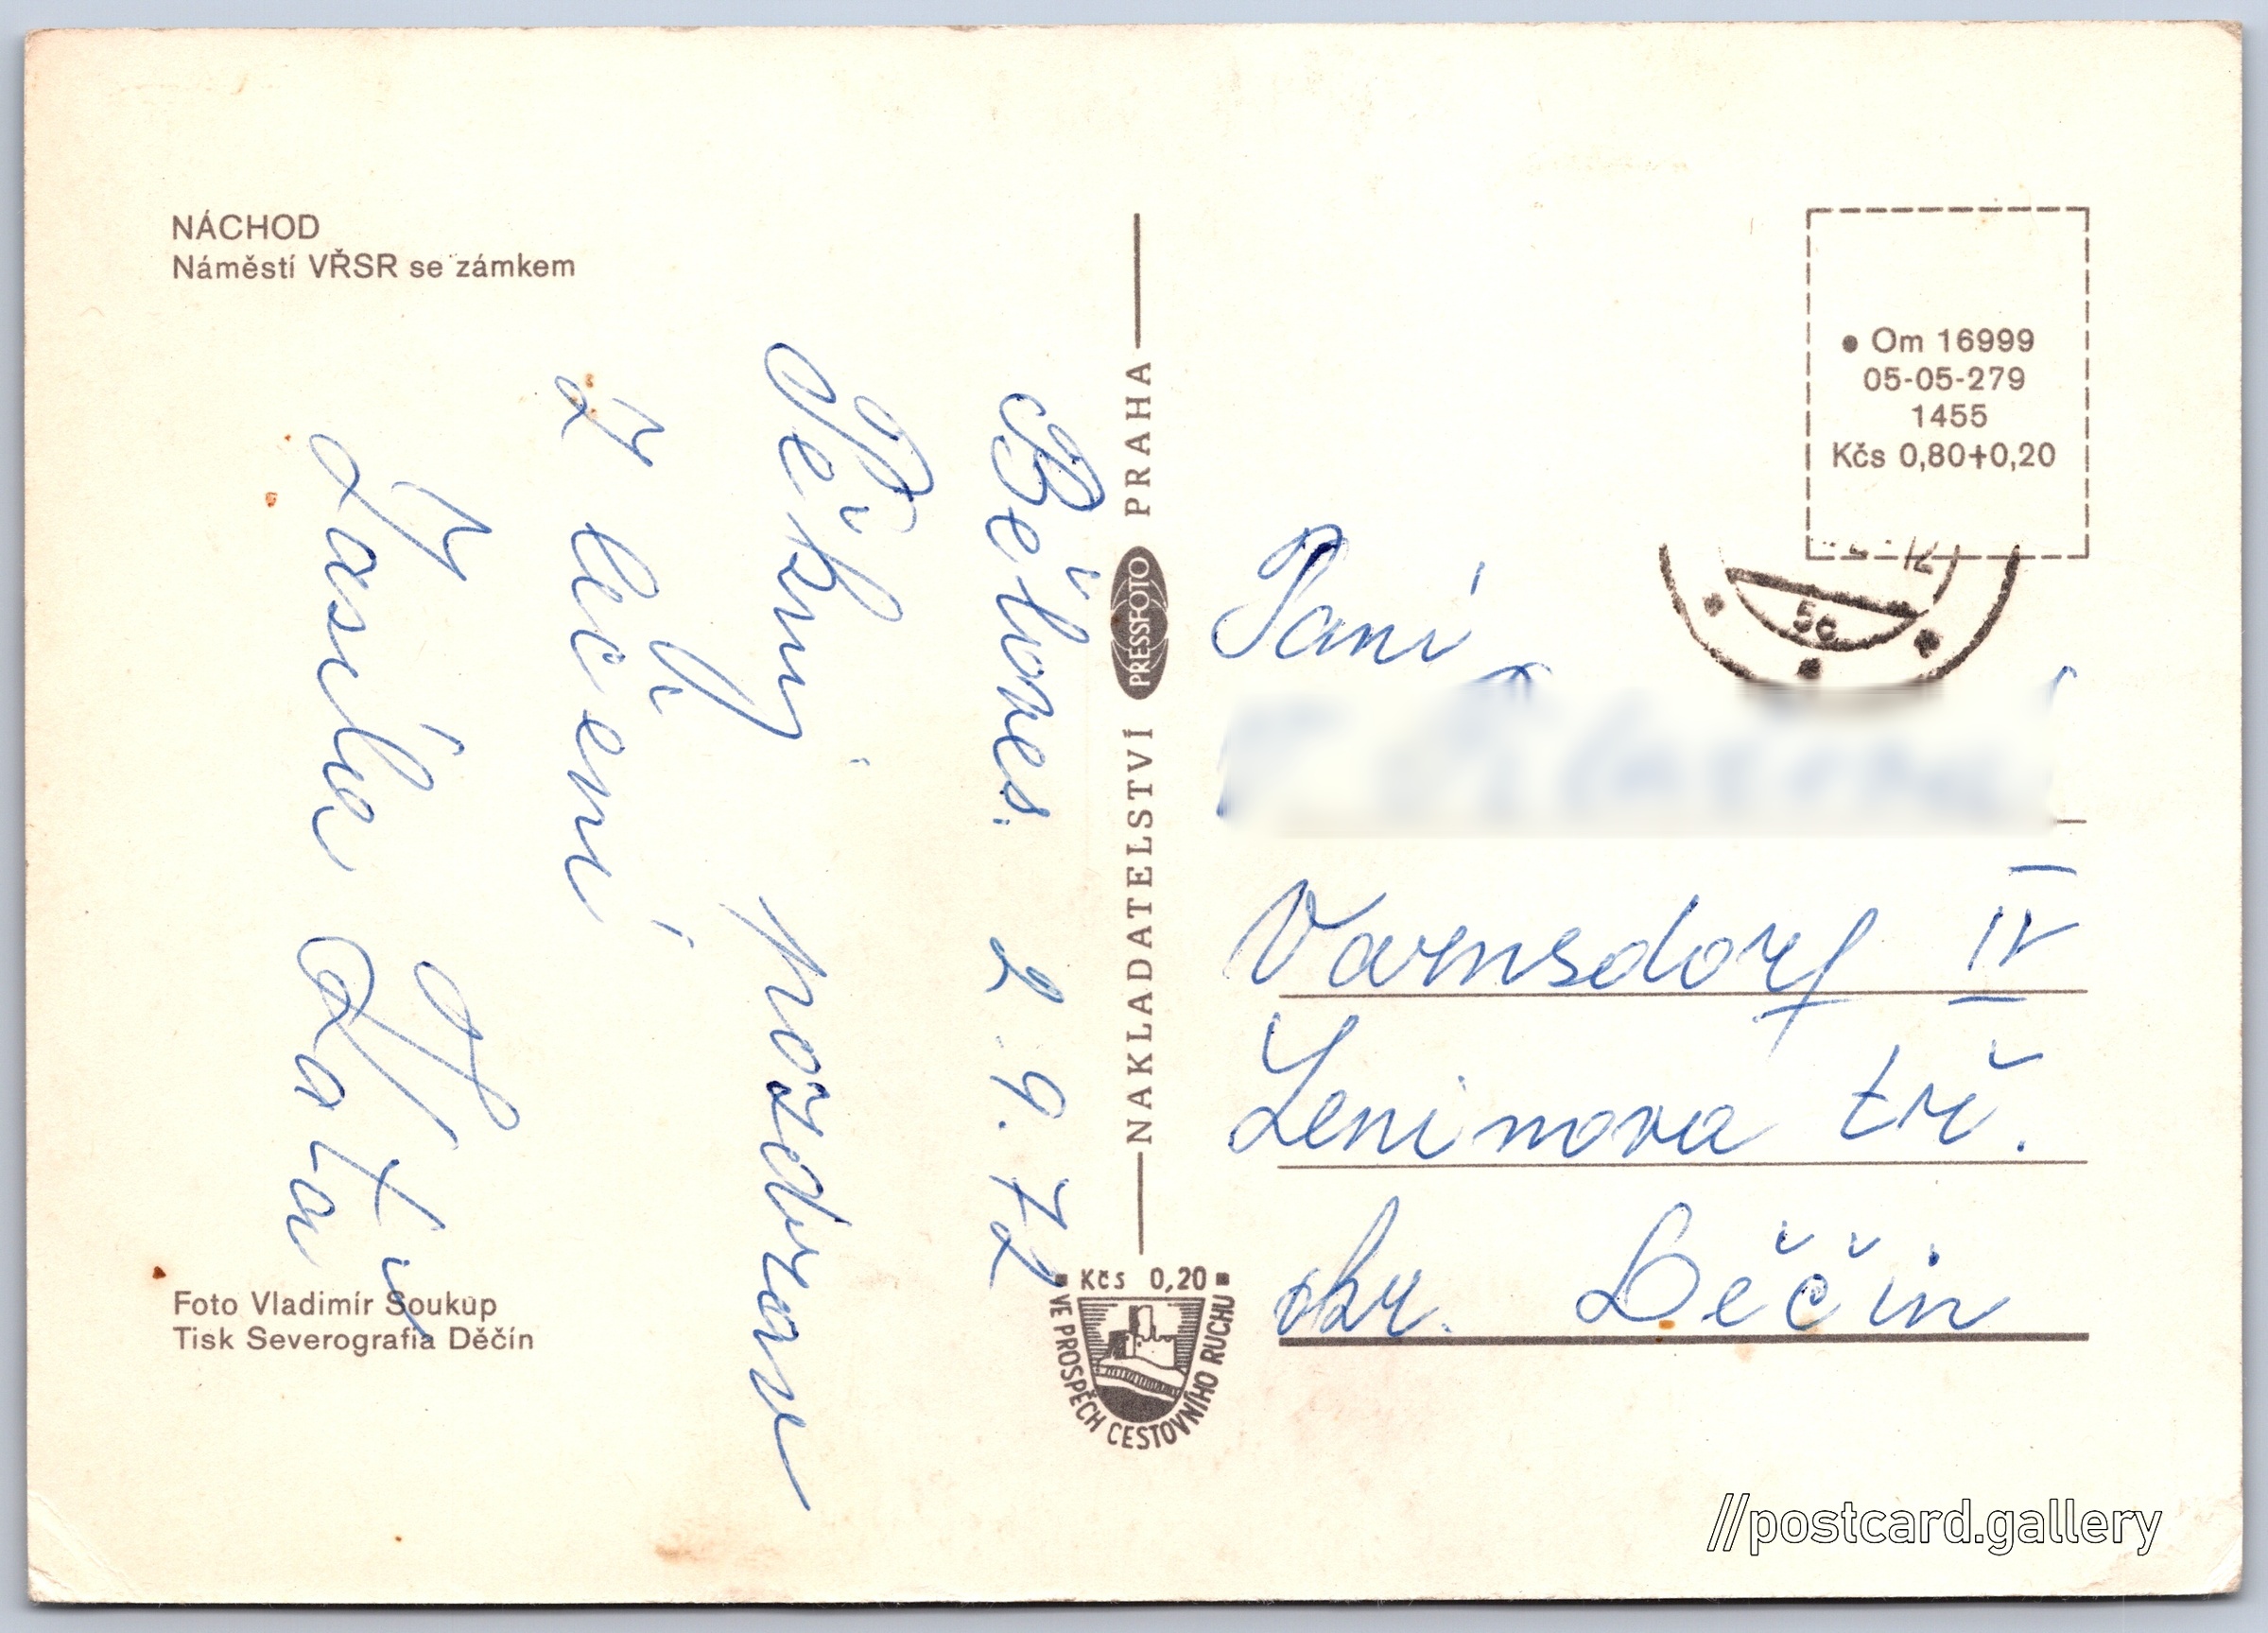 NÁCHOD
Náměstí VŘSR se zámkem
Běloves. 2.9.72
Pěkný pozdrav
z léčení
Zasílá Kotu
Foto Vladimír Soukup
Tisk Severografia Děčín
NAKLADATELSTVÍ PRESSFOTO PRAHA
Kčs 0,20
VE PROSPĚCH CESTOVNÍHO RUCHU
• Om 16999
05-05-279
1455
Kčs 0,80+0,20
5c
Paní
Varnsdorf IV
Leninova tř.
okr. Děčín
//postcard.gallery